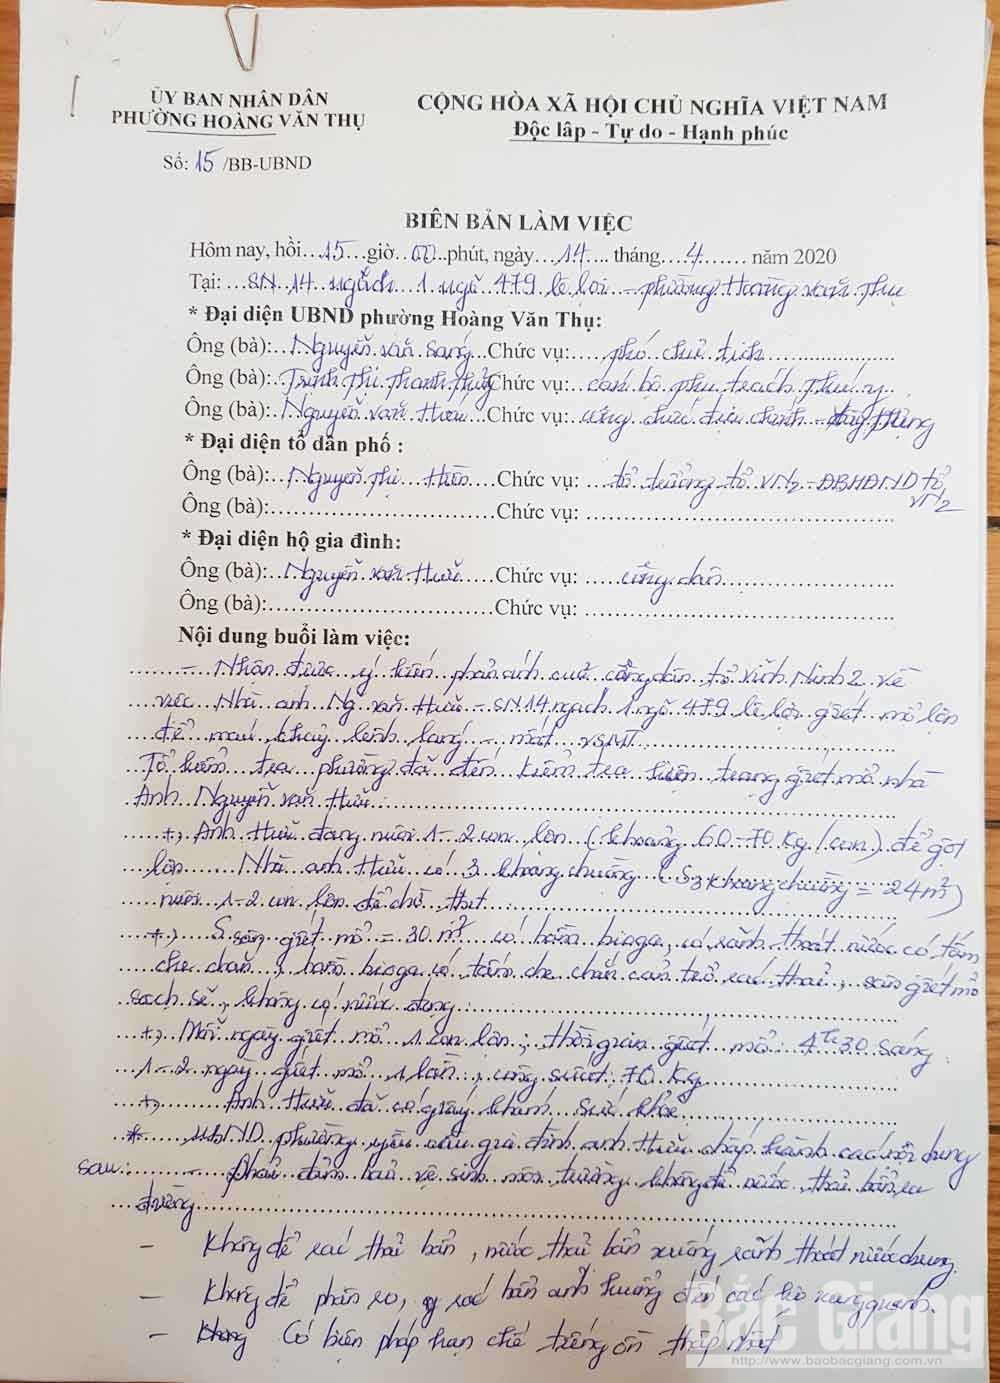 ỦY BAN NHÂN DÂN
PHƯỜNG HOÀNG VĂN THỤ
Số: 15 /BB-UBND
CỘNG HÒA XÃ HỘI CHỦ NGHĨA VIỆT NAM
Độc lâp - Tự do - Hạnh phúc
BIÊN BẢN LÀM VIỆC
Hôm nay, hồi 15 giờ 00 phút, ngày 14 tháng 4 năm 2020
Tại: SN 14 ngách 1 ngõ 479 lê lợi - phường Hoàng văn Thụ
* Đại diện UBND phường Hoàng Văn Thụ:
Ông (bà): Nguyễn văn Sang Chức vụ: phó chủ tịch
Ông (bà): Trịnh Thị Thanh Thủy Chức vụ: cán bộ phụ trách Thú y
Ông (bà): Nguyễn văn Chức vụ: công chức địa chính - xây dựng
* Đại diện tổ dân phố :
Ông (bà): Nguyễn Thị Hiền Chức vụ: tổ trưởng tổ VN2 - ĐBHĐND tổ VN2
Ông (bà): Chức vụ:
* Đại diện hộ gia đình:
Ông (bà): Nguyễn văn Hữu Chức vụ: công dân
Ông (bà): Chức vụ:
Nội dung buổi làm việc:
- Nhận được ý kiến phản ánh của công dân tổ Vĩnh Ninh 2 về
việc Nhà anh Ng văn Hữu - SN 14 ngách 1 ngõ 479 lê lợi giết mổ lợn
để máu chảy lênh láng - mất VSMT
Tổ kiểm tra phường đã đến kiểm tra hiện trạng giết mổ nhà
Anh Nguyễn văn Hữu:
+, Anh Hữu đang nuôi 1-2 con lợn (khoảng 60-70 kg/con) để gột
lợn. Nhà anh Hữu có 3 khoang chuồng (S 3 khoang chuồng = 24 m²)
nuôi 1-2 con lợn để chờ thịt
+, S sân giết mổ = 30 m² có hầm bioga, có rãnh thoát nước có tấm
che chắn, hầm bioga có tấm che chắn cản trở rác thải, sân giết mổ
sạch sẽ, không có nước đọng.
+, Mỗi ngày giết mổ 1 con lợn; thời gian giết mổ: 4h30 sáng
1-2 ngày giết mổ 1 lần, công suất: 70 kg
+, Anh Hữu đã có giấy khám sức khỏe
* UBND phường yêu cầu gia đình anh Hữu chấp hành các nội dung
sau: - Phải đảm bảo vệ sinh môi trường không để nước thải bẩn ra
đường
- Không để rác thải bẩn, nước thải bẩn xuống rãnh thoát nước chung.
- Không để phân ro, rác bẩn ảnh hưởng đến các hộ xung quanh.
- Có biện pháp hạn chế tiếng ồn thấp nhất
Bắc Giang
http://www.baobacgiang.com.vn